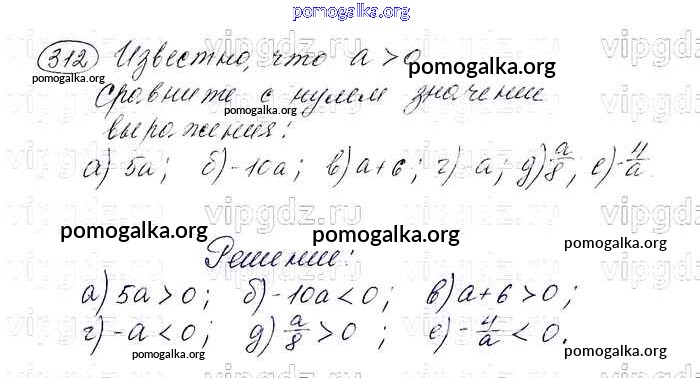 pomogalka.org
312 Известно, что a > 0
pomogalka.org
pomogalka.org
сравните с нулем значении
pomogalka.org
выражения:
а) 5a; б) -10a; в) a+6; г) -a; д) a/8; е) -4/a.
pomogalka.org
pomogalka.org
pomogalka.org
Решение:
а) 5a > 0; б) -10a < 0; в) a+6 > 0;
г) -a < 0; д) a/8 > 0; е) -4/a < 0.
pomogalka.org
pomogalka.org